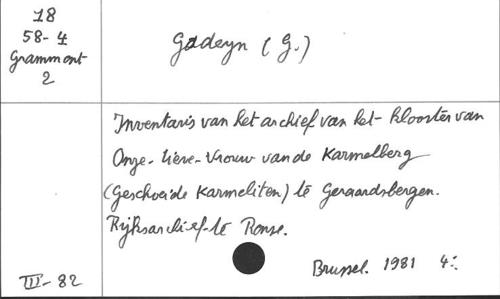 18
58-4
Grammont
2
Gadeyn (G.)
Inventaris van het archief van het klooster van
Onze-Lieve-Vrouw van de Karmelberg
(Geschoeide Karmelieten) te Geraardsbergen.
Rijksarchief te Ronse.
Brussel. 1981 4:
III-82